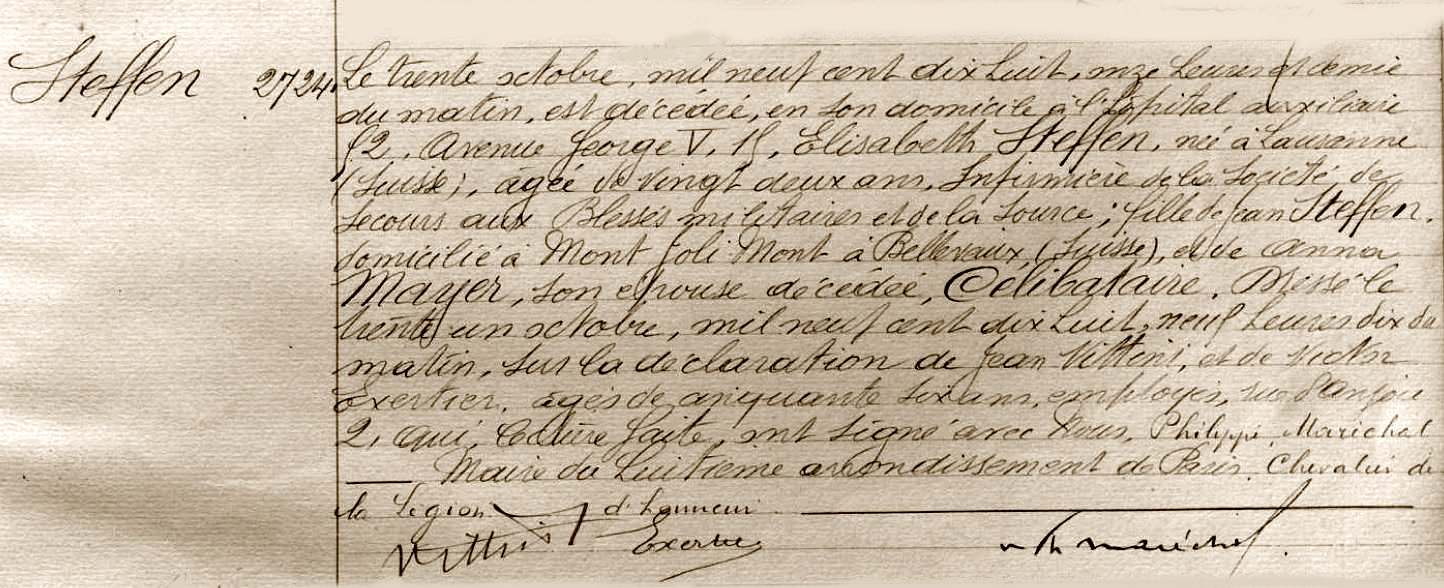 Steffen 2724
Le trente octobre, mil neuf cent dix huit, onze heures et demie
du matin, est décédée, en son domicile à l'hôpital auxiliaire
52, Avenue George V, 15, Elisabeth Steffen, née à Lausanne
(Suisse), agée de vingt deux ans, Infirmière de la Société de
Secours aux Blessés militaires et de la Source; fille de Jean Steffen,
domicilié à Mont Joli Mont à Bellevaux (Suisse), et de Anna
Mayer, son épouse décédée, Célibataire. Dressé le
trente un octobre, mil neuf cent dix huit, neuf heures dix du
matin, sur la déclaration de Jean Vittini, et de Victor
Exertier, agés de cinquante six ans, employés, rue d'Anjou
2, qui, lecture faite, ont signé avec Nous, Philippe Maréchal
Maire du huitième arrondissement de Paris, Chevalier de
la Légion d'honneur
Vittini Exertier Maréchal